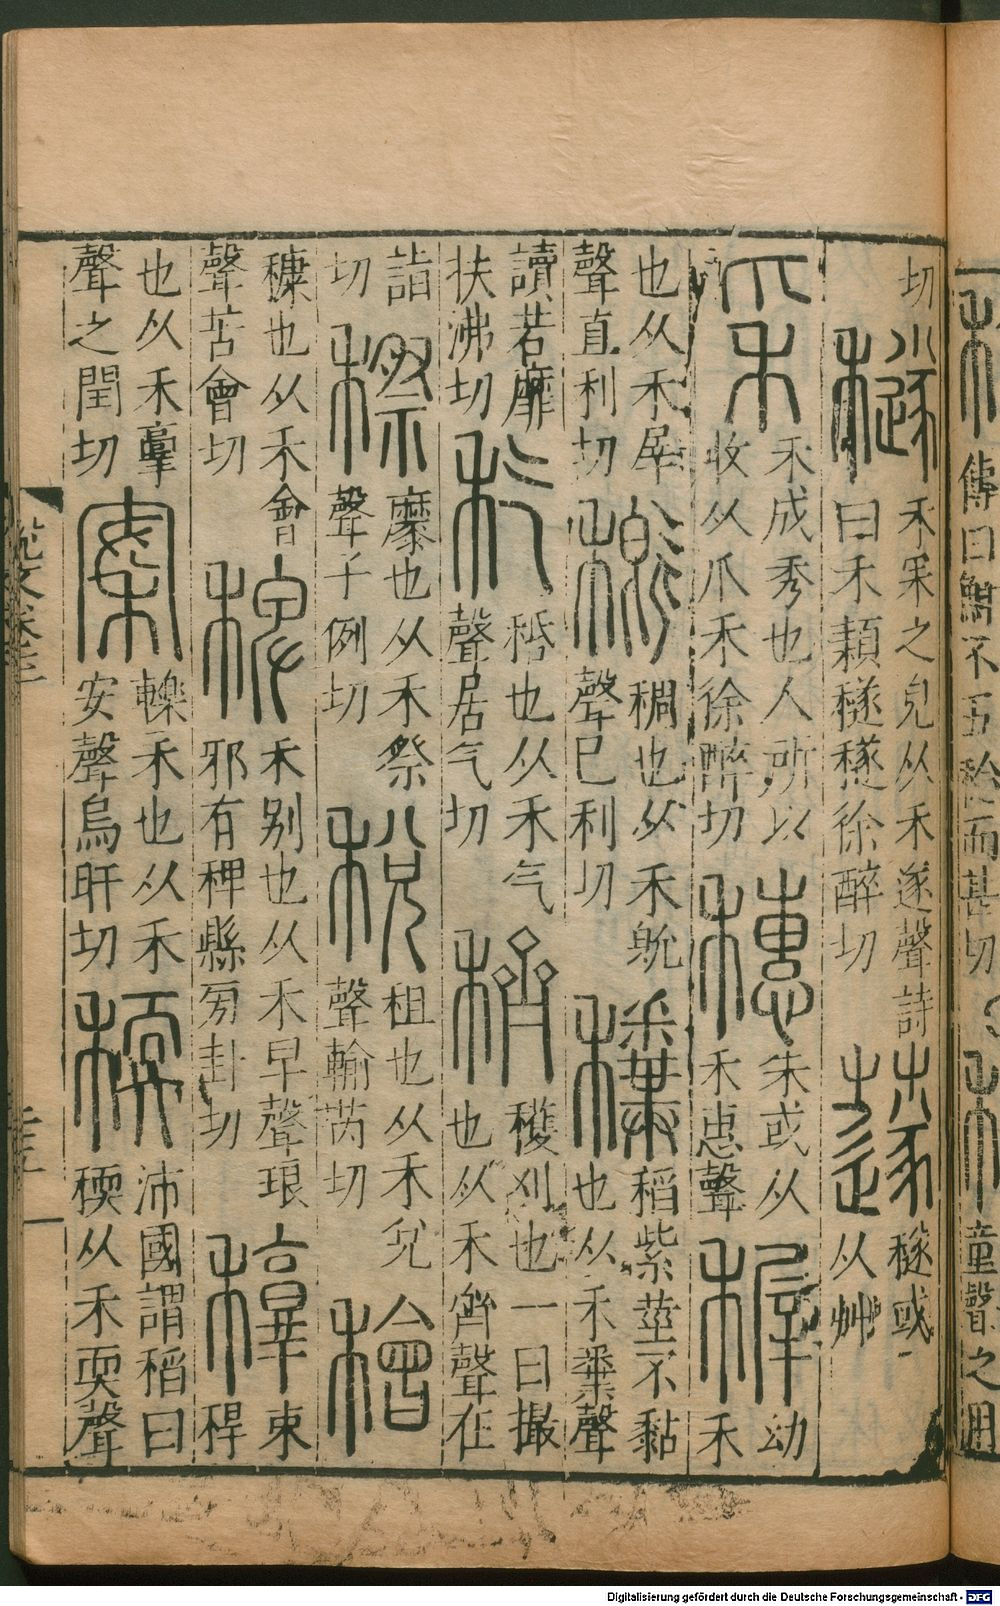 種
傳曰鮮不五稔而甚切
童聲之用
切
穟
禾采之皃从禾遂聲詩
曰禾穎穟穟徐醉切
穟或
从艸
采
禾成秀也人所以
收从爪禾徐醉切
穗
采或从
禾惠聲
稺
幼
禾
也从禾犀
聲直利切
穊
稠也从禾旣
聲已利切
稻紫莖不黏
也从禾糞聲
讀若靡
扶沸切
秳也从禾气
聲居气切
穧
穫刈也一曰撮
也从禾齊聲在
詣
切
穄
穈也从禾祭
聲子例切
稅
租也从禾兌
聲輸芮切
穅也从禾會
聲苦會切
稗
禾別也从禾卑聲琅
邪有稗縣㫄卦切
稕
束
稈
也从禾𦎫
聲之閏切
案
轢禾也从禾
安聲烏旰切
稬
沛國謂稻曰
稬从禾耎聲
說文卷